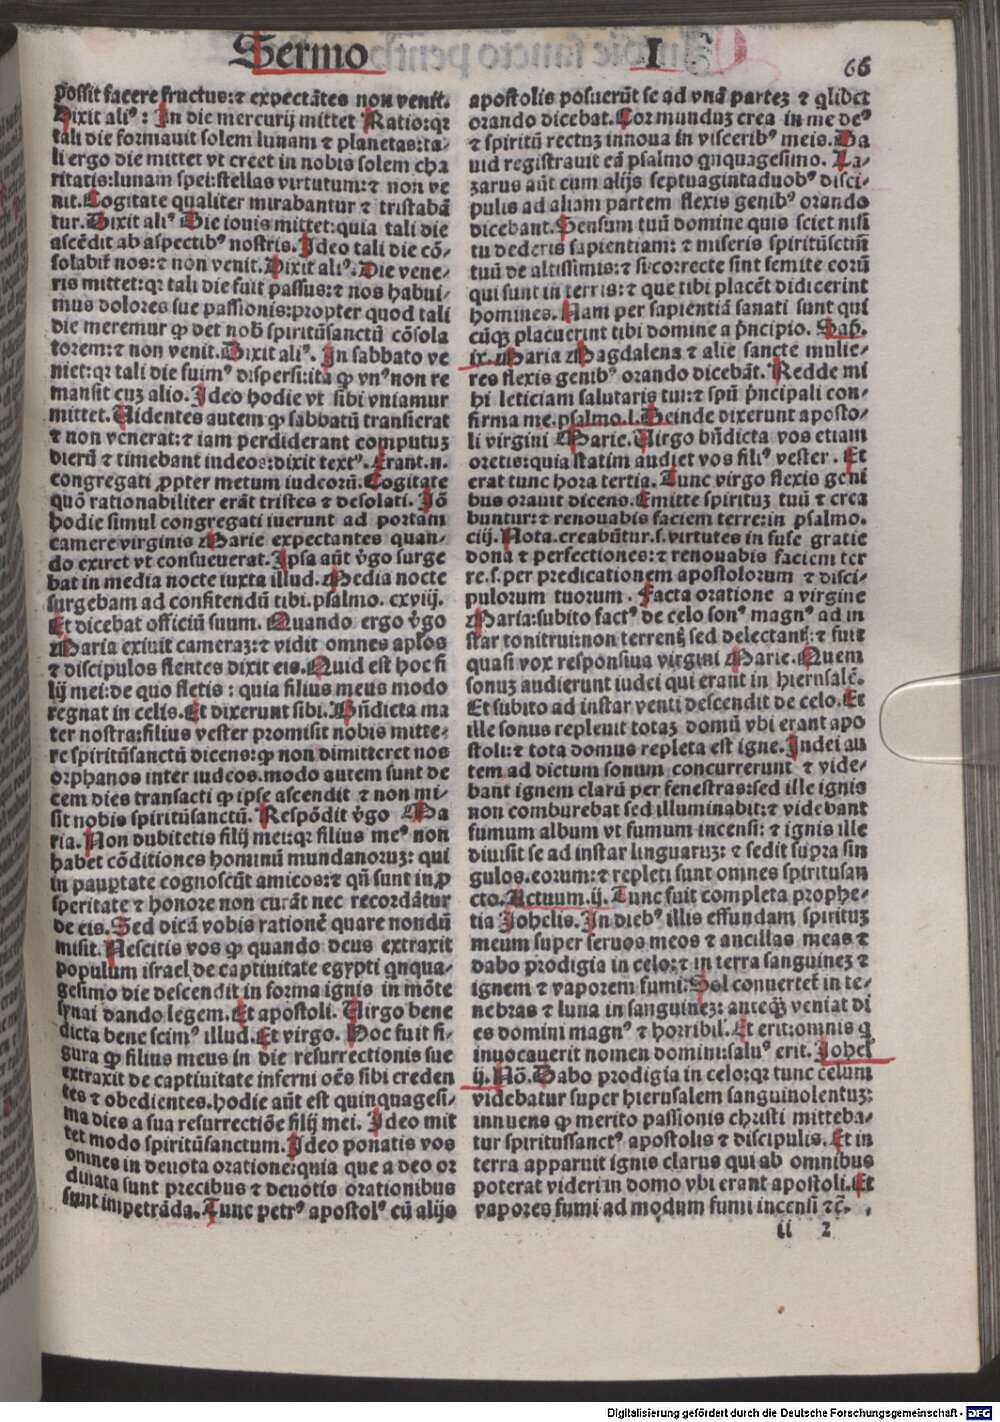 Sermo I
66
possit facere fructus:⁊ expectātes non venit.
Dixit aliꝰ: In die mercurij mittet Ratio:qꝛ
tali die formauit solem lunam ⁊ planetas:ta-
li ergo die mittet vt creet in nobis solem cha
ritatis:lunam spei:stellas virtutum:⁊ non ve
nit. Cogitate qualiter mirabantur ⁊ tristabā
tur. Dixit aliꝰ Die iouis mittet:quia tali die
ascēdit ab aspectibꝰ nostris. Ideo tali die cō-
solabit nos:⁊ non venit. Dixit aliꝰ. Die vene-
ris mittet:qꝛ tali die fuit passus:⁊ nos habui-
mus dolores sue passionis:propter quod tali
die meremur ꝙ det nob̄ spiritūsanctū cōsola
torem:⁊ non venit. Dixit aliꝰ. In sabbato ve
niet:qꝛ tali die fuimꝰ dispersi:ita ꝙ vnꝰ non re
mansit cuʒ alio. Ideo hodie vt sibi vniamur
mittet. Uidentes autem ꝙ sabbatū transierat
⁊ non venerat:⁊ iam perdiderant computuʒ
dierū ⁊ timebant iudeos:dixit textꝰ. Erant.n.
congregati ꝓpter metum iudeorū. Cogitate
quō rationabiliter erāt tristes ⁊ desolati. Iō
hodie simul congregati iuerunt ad portam
camere virginis Marie expectantes quan-
do exiret vt consueuerat. Ipsa aūt v̄go surge
bat in media nocte iuxta illud. Media nocte
surgebam ad confitendū tibi.psalmo. cxviij.
Et dicebat officiū suum. Quando ergo v̄go
Maria exiuit cameraʒ:⁊ vidit omnes aplos
⁊ discipulos flentes dixit eis. Quid est hoc fi
lij mei:de quo fletis : quia filius meus modo
regnat in celis. Et dixerunt sibi. Bn̄dicta ma
ter nostra:filius vester promisit nobis mitte-
re spiritūsanctū dicens:ꝙ non dimitteret nos
orphanos inter iudeos.modo autem sunt de
cem dies transacti ꝙ ipse ascendit ⁊ non mi-
sit nobis spiritūsanctū. Respōdit v̄go Ma
ria. Non dubitetis filij mei:qꝛ filius meꝰ non
habet cōditiones hominū mundanoruʒ: qui
in paupertate cognoscūt amicos:⁊ qn̄ sunt in ꝓ
speritate ⁊ honore non curāt nec recordātur
de eis. Sed dicā vobis rationē quare nondū
misit. Nescitis vos ꝙ quando deus extraxit
populum israel de captiuitate egypti qnqua-
gesimo die descendit in forma ignis in mōte
synai dando legem. Et apostoli. Uirgo bene
dicta bene scimꝰ illud. Et virgo. Hoc fuit fi-
gura ꝙ filius meus in die resurrectionis sue
extraxit de captiuitate inferni oēs sibi creden
tes ⁊ obedientes.hodie aūt est quinquagesi-
ma dies a sua resurrectiōe filij mei. Ideo mit
tet modo spiritūsanctum. Ideo ponatis vos
omnes in deuota oratione:quia que a deo or
dinata sunt precibus ⁊ deuotis orationibus
sunt impetrāda. Tunc petrꝰ apostolꝰ cū alijs
apostolis posuerūt se ad vnā parteʒ ⁊ qlibet
orando dicebat. Cor munduʒ crea in me deꝰ
⁊ spiritū rectuʒ innoua in visceribꝰ meis. Da
uid registrauit eā psalmo qnquagesimo. La-
zarus aūt cum alijs septuagintaduobꝰ disci-
pulis ad aliam partem flexis genibꝰ orando
dicebant. Sensum tuū domine quis sciet nisi
tu dederis sapientiam: ⁊ miseris spiritūsctū
tuū de altissimis:⁊ si correcte sint semite eorū
qui sunt in terris:⁊ que tibi placēt didicerint
homines. Nam per sapientiā sanati sunt qui
cūqꝫ placuerint tibi domine a p̄ncipio. Sap̄.
ix. Maria Magdalena ⁊ alie sancte mulie-
res flexis genibꝰ orando dicebāt. Redde mi
hi leticiam salutaris tui:⁊ spū p̄ncipali con-
firma me.psalmo.l. Deinde dixerunt aposto-
li virgini Marie. Uirgo bn̄dicta vos etiam
oretis:quia statim audiet vos filiꝰ vester . Et
erat tunc hora tertia. Tunc virgo flexis geni
bus orauit dicens. Emitte spirituʒ tuū ⁊ crea
buntur:⁊ renouabis faciem terre:in psalmo.
ciij. Nota.creabūtur.s.virtutes in fuse gratie
dona ⁊ perfectiones:⁊ renouabis faciem ter
re.s.per predicationem apostolorum ⁊ disci-
pulorum tuorum . Facta oratione a virgine
Maria:subito factꝰ de celo sonꝰ magnꝰ ad in
star tonitrui:non terrens sed delectans:⁊ fuit
quasi vox responsiua virgini Marie. Quem
sonuʒ audierunt iudei qui erant in hierusalē.
Et subito ad instar venti descendit de celo. Et
ille sonus repleuit totaʒ domū vbi erant apo
stoli:⁊ tota domus repleta est igne. Iudei au
tem ad dictum sonum concurrerunt ⁊ vide-
bant ignem clarū per fenestras:sed ille ignis
non comburebat sed illuminabit:⁊ videbant
fumum album vt fumum incensi: ⁊ ignis ille
diuisit se ad instar linguaruʒ: ⁊ sedit supra sin
gulos.eorum:⁊ repleti sunt omnes spiritusan
cto. Actuum.ij. Tunc fuit completa prophe-
tia Johelis. In diebꝰ illis effundam spirituʒ
meum super seruos meos ⁊ ancillas meas ⁊
dabo prodigia in celo:⁊ in terra sanguineʒ ⁊
ignem ⁊ vaporem fumi. Sol conuertet̄ in te-
nebras ⁊ luna in sanguineʒ: anteqꝫ veniat di
es domini magnꝰ ⁊ horribil̄. Et erit:omnis q̄
inuocauerit nomen domini:saluꝰ erit. Johel
ij. Nō. Dabo prodigia in celo:qꝛ tunc celum
videbatur super hierusalem sanguinolentuʒ:
innuens ꝙ merito passionis christi mitteba-
tur spiritussanctꝰ apostolis ⁊ discipulis. Et in
terra apparuit ignis clarus qui ab omnibus
poterat videri in domo vbi erant apostoli. Et
vapores fumi ad modum fumi incensi ⁊c̄.
ll 2
Digitalisierung gefördert durch die Deutsche Forschungsgemeinschaft - DFG